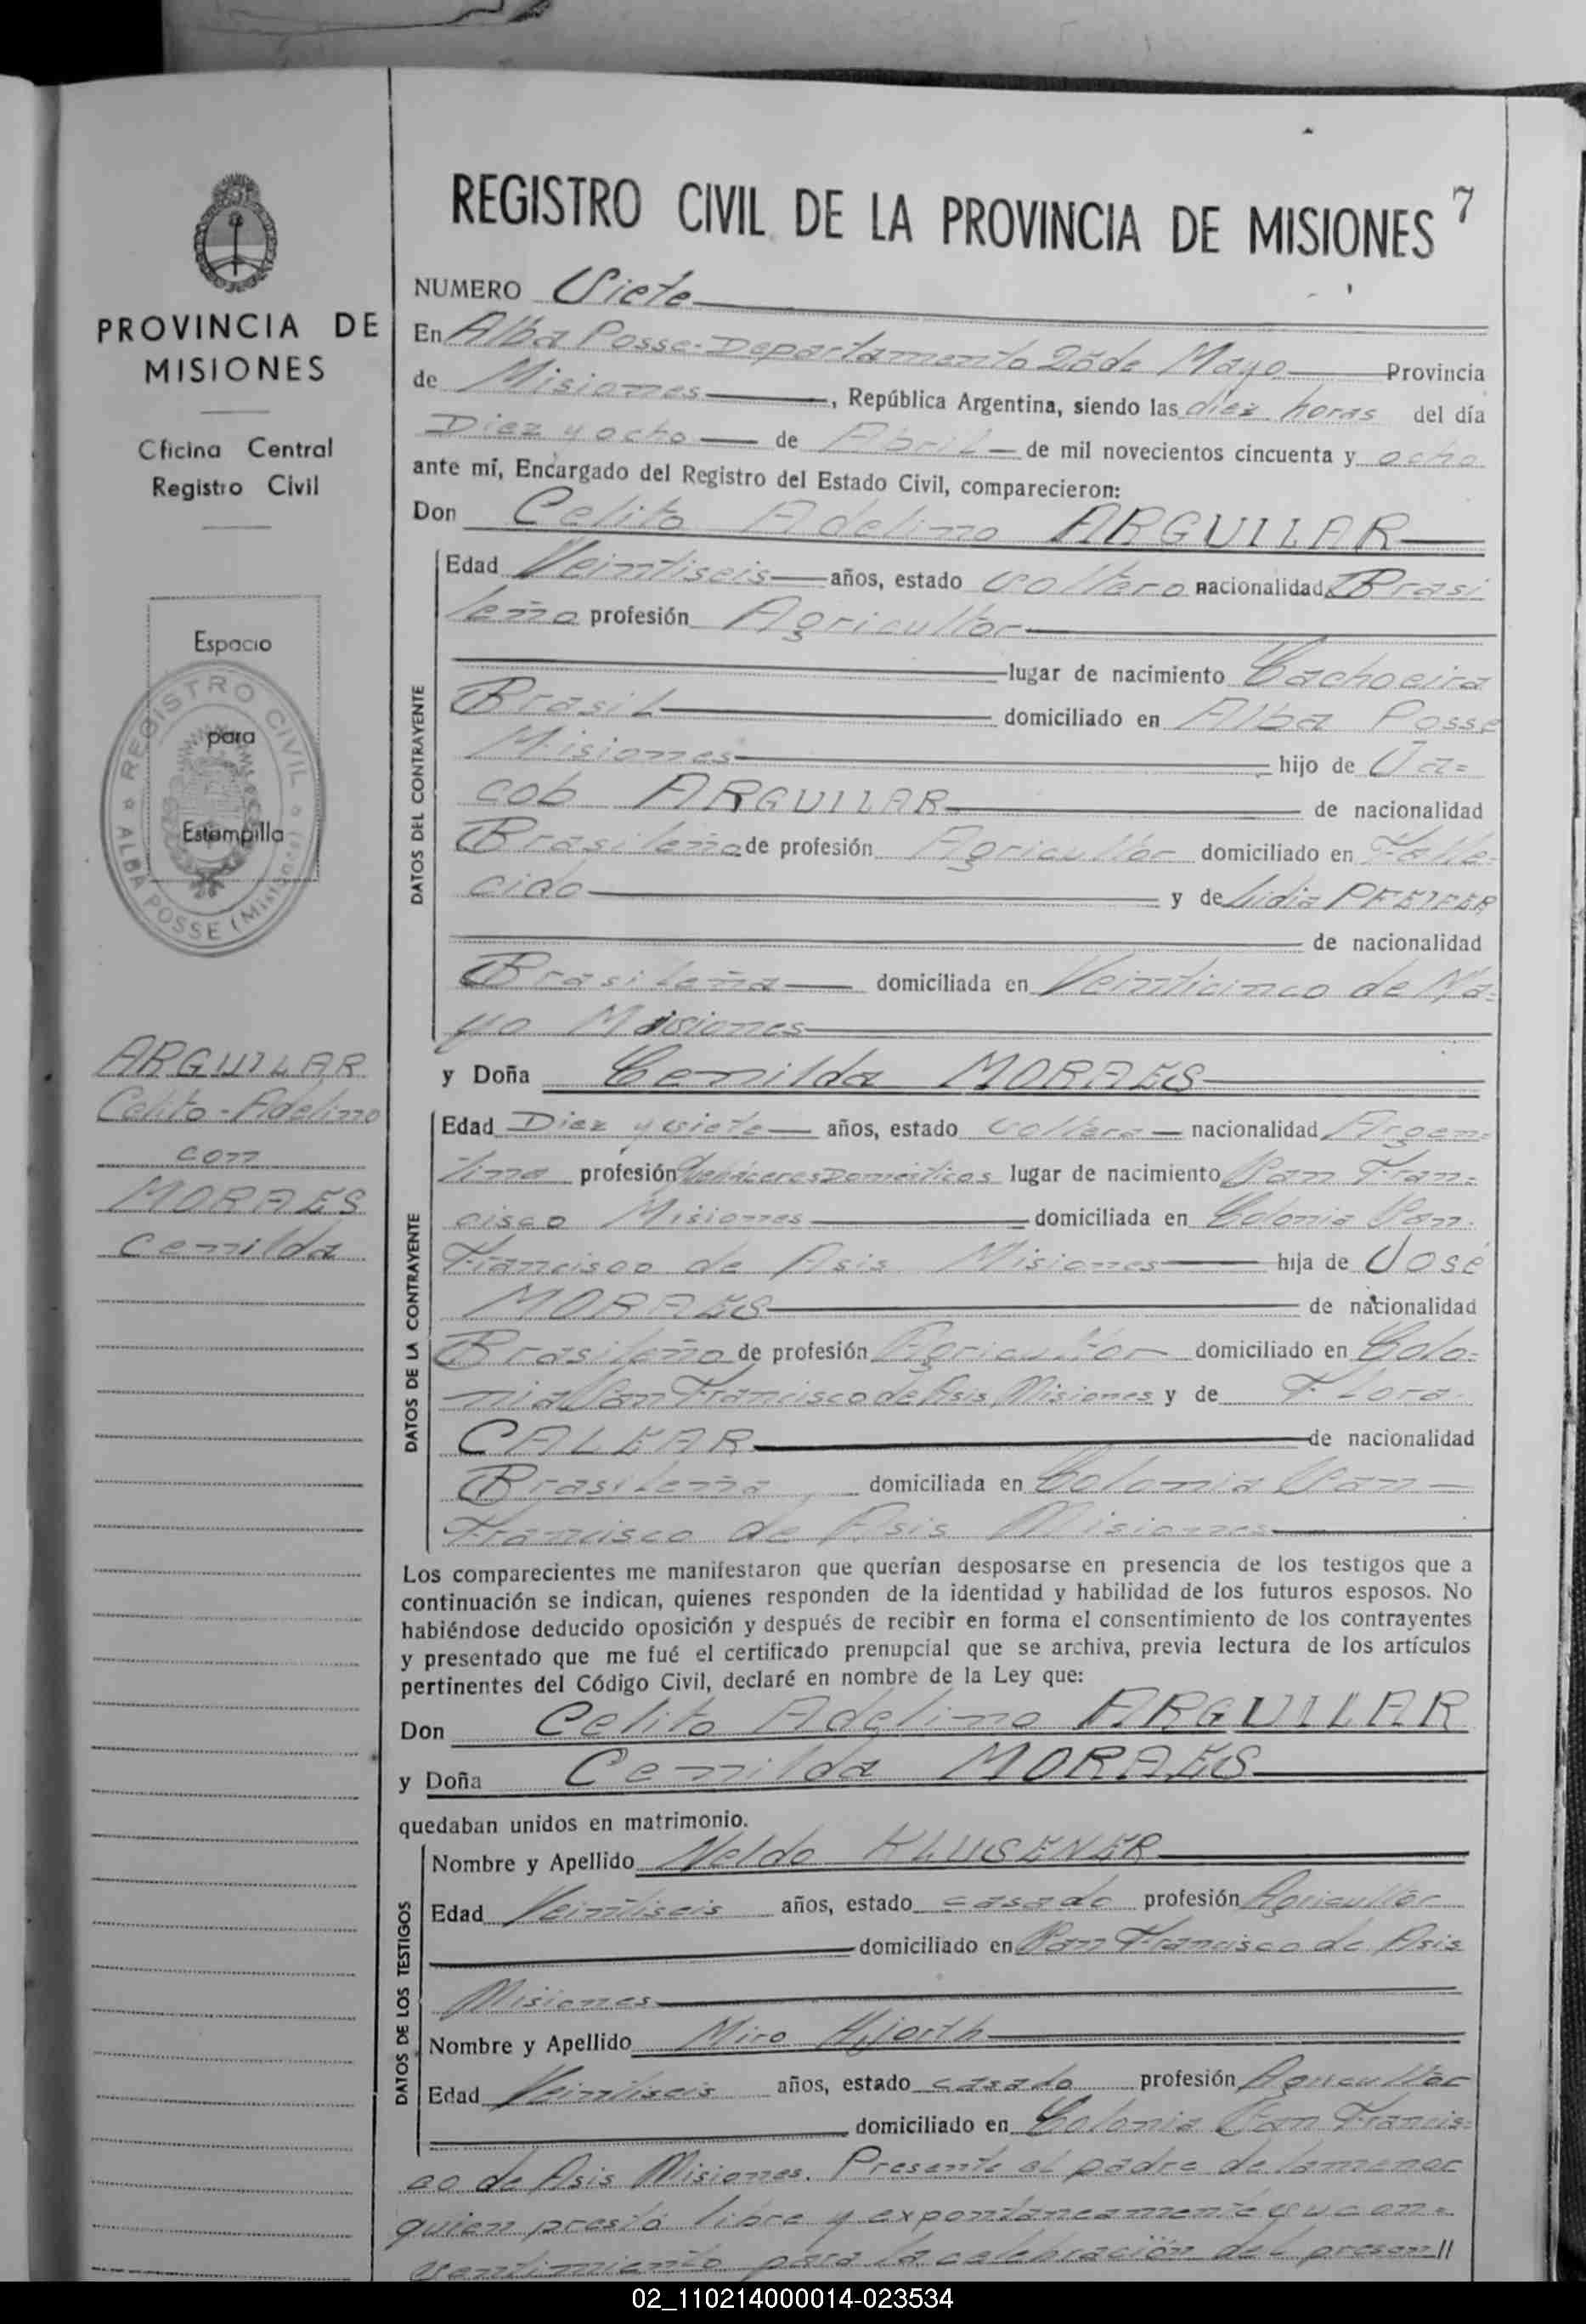 7
REGISTRO CIVIL DE LA PROVINCIA DE MISIONES
PROVINCIA DE
MISIONES
Oficina Central
Registro Civil
Espacio
para
Estampilla
REGISTRO CIVIL
ALBA POSSE (Misiones)
ARGUILAR
Celito-Adelino
con
MORAES
Cenilda
NUMERO Siete
En Alba Posse-Departamento 25 de Mayo Provincia
de Misiones, República Argentina, siendo las diez horas del día
Diez y ocho de Abril de mil novecientos cincuenta y ocho
ante mí, Encargado del Registro del Estado Civil, comparecieron:
Don Celito Adelino ARGUILAR
DATOS DEL CONTRAYENTE
Edad Veintiseis años, estado soltero nacionalidad Brasi
leño profesión Agricultor
lugar de nacimiento Cachoeira
Brasil domiciliado en Alba Posse
Misiones hijo de Ja=
cob ARGUILAR de nacionalidad
Brasileño de profesión Agricultor domiciliado en Falle-
cido y de Lidia PFEIFER
de nacionalidad
Brasileña domiciliada en Veinticinco de Ma-
yo Misiones
y Doña Cenilda MORAES
DATOS DE LA CONTRAYENTE
Edad Diez y siete años, estado soltera nacionalidad Argen=
tina profesión Quehaceres Domésticos lugar de nacimiento San Fran=
cisco Misiones domiciliada en Colonia San
Francisco de Asis Misiones hija de José
MORAES de nacionalidad
Brasileño de profesión Agricultor domiciliado en Colo=
nia San Francisco de Asis Misiones y de Flora
CALEAR de nacionalidad
Brasileña domiciliada en Colonia San
Francisco de Asis Misiones
Los comparecientes me manifestaron que querían desposarse en presencia de los testigos que a
continuación se indican, quienes responden de la identidad y habilidad de los futuros esposos. No
habiéndose deducido oposición y después de recibir en forma el consentimiento de los contrayentes
y presentado que me fué el certificado prenupcial que se archiva, previa lectura de los artículos
pertinentes del Código Civil, declaré en nombre de la Ley que:
Don Celito Adelino ARGUILAR
y Doña Cenilda MORAES
quedaban unidos en matrimonio.
DATOS DE LOS TESTIGOS
Nombre y Apellido Neldo KLUSENER
Edad Veintiseis años, estado casado profesión Agricultor
domiciliado en San Francisco de Asis
Misiones
Nombre y Apellido Miro Hjorth
Edad Veintiseis años, estado casado profesión Agricultor
domiciliado en Colonia San Francis=
co de Asis Misiones. Presente el padre de la menor
quien prestó libre y expontaneamente su con=
sentimiento para la celebración del presen//
02_110214000014-023534